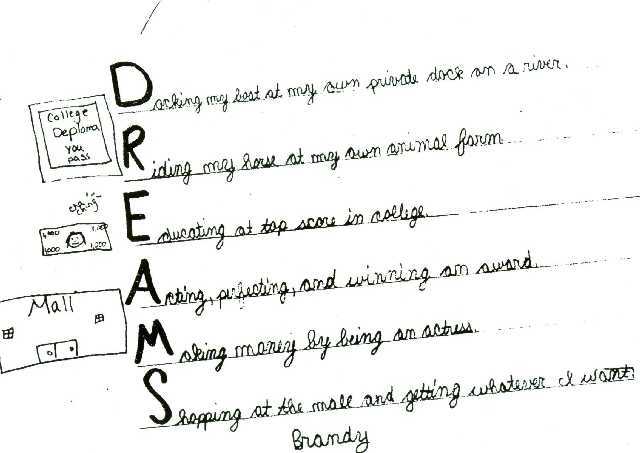 Docking my boat at my own private dock on a river.
College
Deploma
you
pass
Riding my horse at my own animal farm
ching
Educating at top score in college.
1,000 1,000
1,000 1,000
Acting, perfecting, and winning an award.
Mall
Making money by being an actress.
Shopping at the mall and getting whatever I want.
Brandy